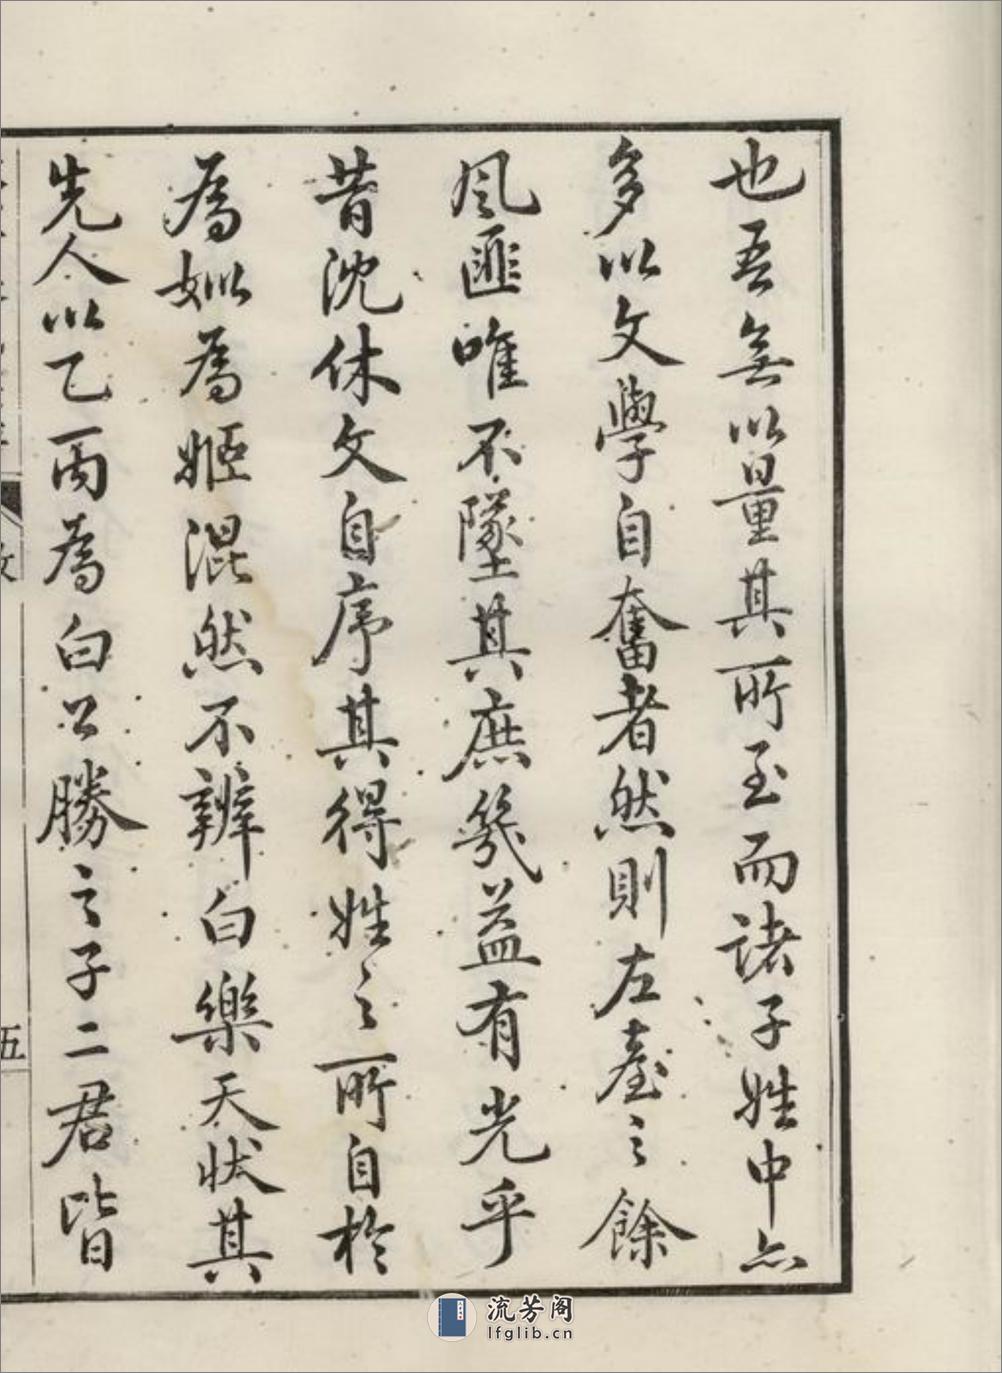 也吾無以量其所至而諸子姓中亦
多以文學自奮者然則左臺之餘
風匪唯不墜其庶幾益有光乎
昔沈休文自序其得姓之所自於
為姒為姬混然不辨白樂天狀其
先人以乙丙為白公勝之子二君皆
五
流芳阁
lfglib.cn